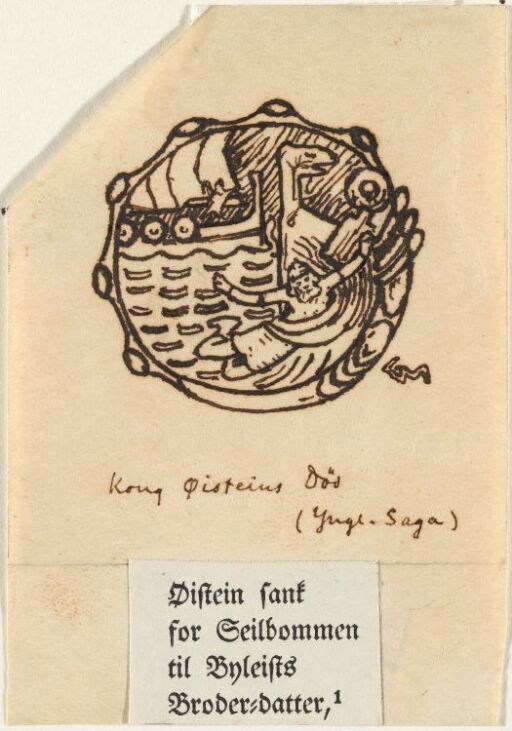 Kong Øisteins Död
(Yngl. Saga)
Øistein sank
for Seilbommen
til Byleists
Broder-datter,¹